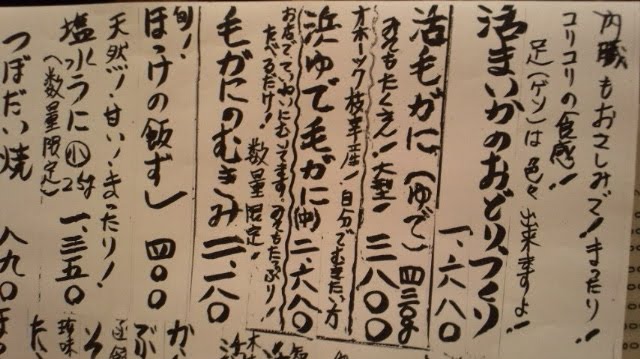 内臓もおさしみで!まったり!
コリコリの(食感)!
足(ゲソ)は色々出来ますよ!
活まいかのおどりづくり
一、六八〇
活毛がに(ゆで)四三〇g
みそもたくさん!大型!三八〇〇
オホーツク枝幸産!自分でむきたい方
浜ゆで毛がに(中)二、六八〇
お店でていねいにむいてます。みそもたっぷり!
たべるだけ!数量限定!
毛がにのむきみ二、一八〇
旬!
ほっけの飯ずし四〇〇
天然!甘い!まったり!
塩水うに(小)25g一、三五〇
(数量限定)
つぼだい焼八九〇